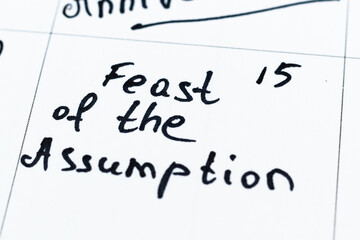 Feast 15
of the
Assumption